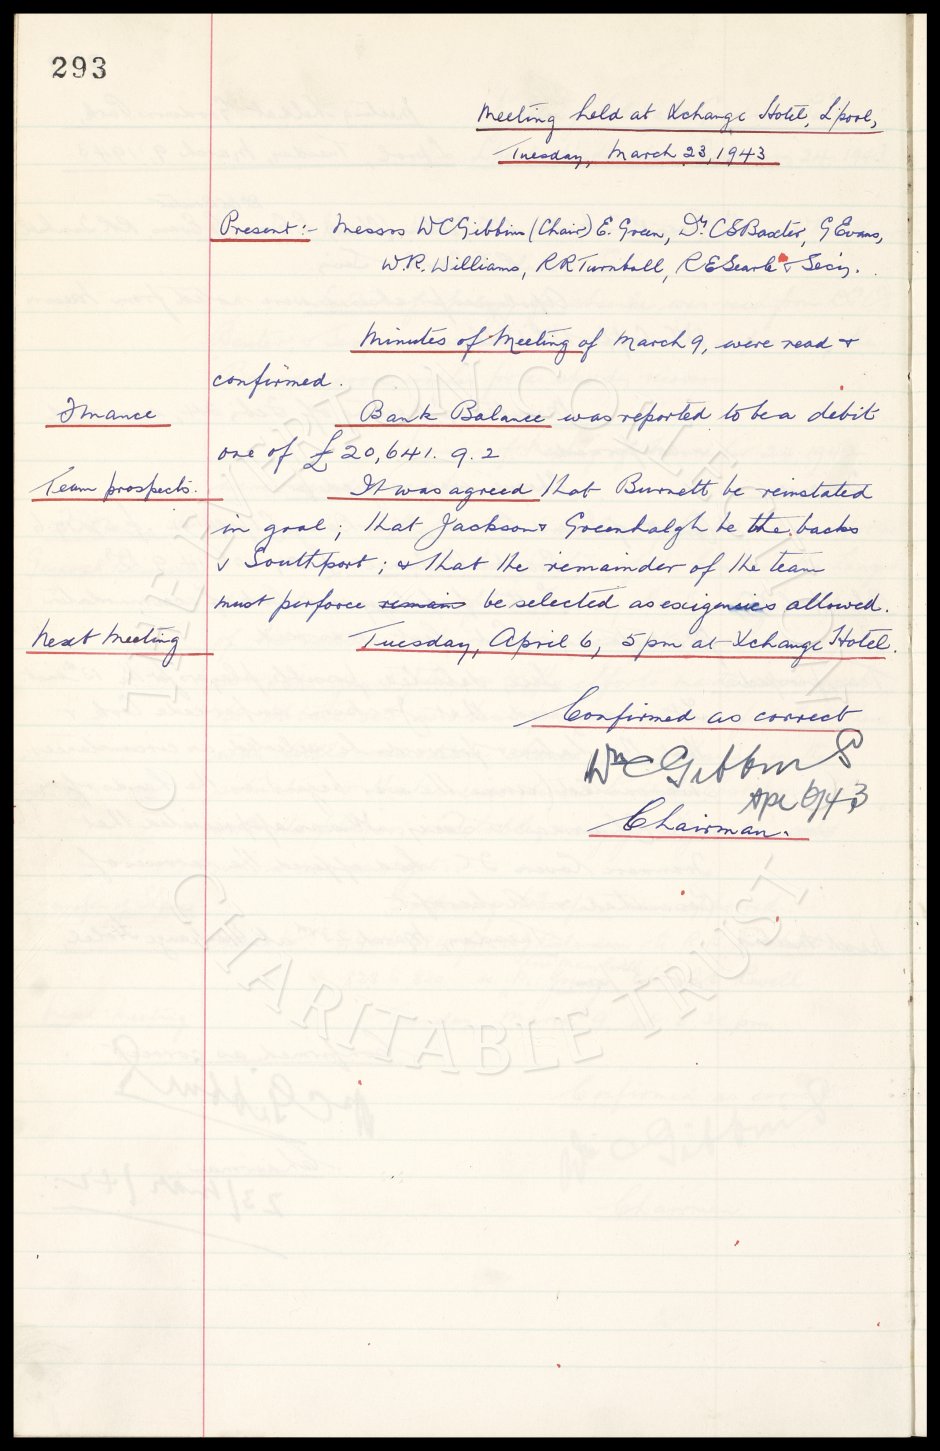 293
Meeting held at Xchange Hotel, L'pool,
Tuesday, March 23, 1943
Present:- Messrs W C Gibbins (Chair) E. Green, Dr. C S Baxter, G Evans,
W. R. Williams, R R Turnbull, R E Searle & Sec'y.
Minutes of Meeting of March 9, were read &
confirmed.
Finance Bank Balance was reported to be a debit
one of £20,641. 9. 2
Team prospects. It was agreed that Burnett be reinstated
in goal; that Jackson & Greenhalgh be the backs
v Southport; & that the remainder of the team
must perforce remain be selected as exigencies allowed.
Next Meeting Tuesday, April 6, 5pm at Xchange Hotel.
Confirmed as correct
Wm C Gibbins
Apl 6/43
Chairman.
EVERTON COLLECTION
CHARITABLE TRUST